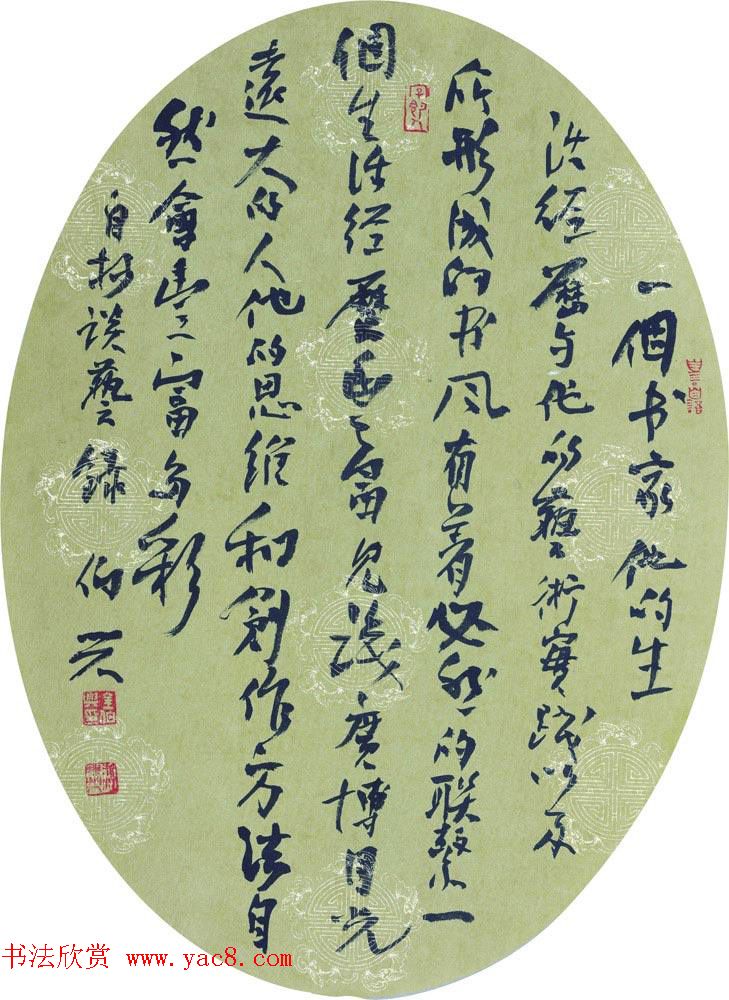 一個书家他的生
活經歷与他的藝術實踐以及
所形成的书风有着必然的联繫一
個生活经歷丰富见識廣博目光
遠大的人他的思维和創作方法自
然會丰富多彩
自抄谈藝録 伯兴
书法欣赏 www.yac8.com